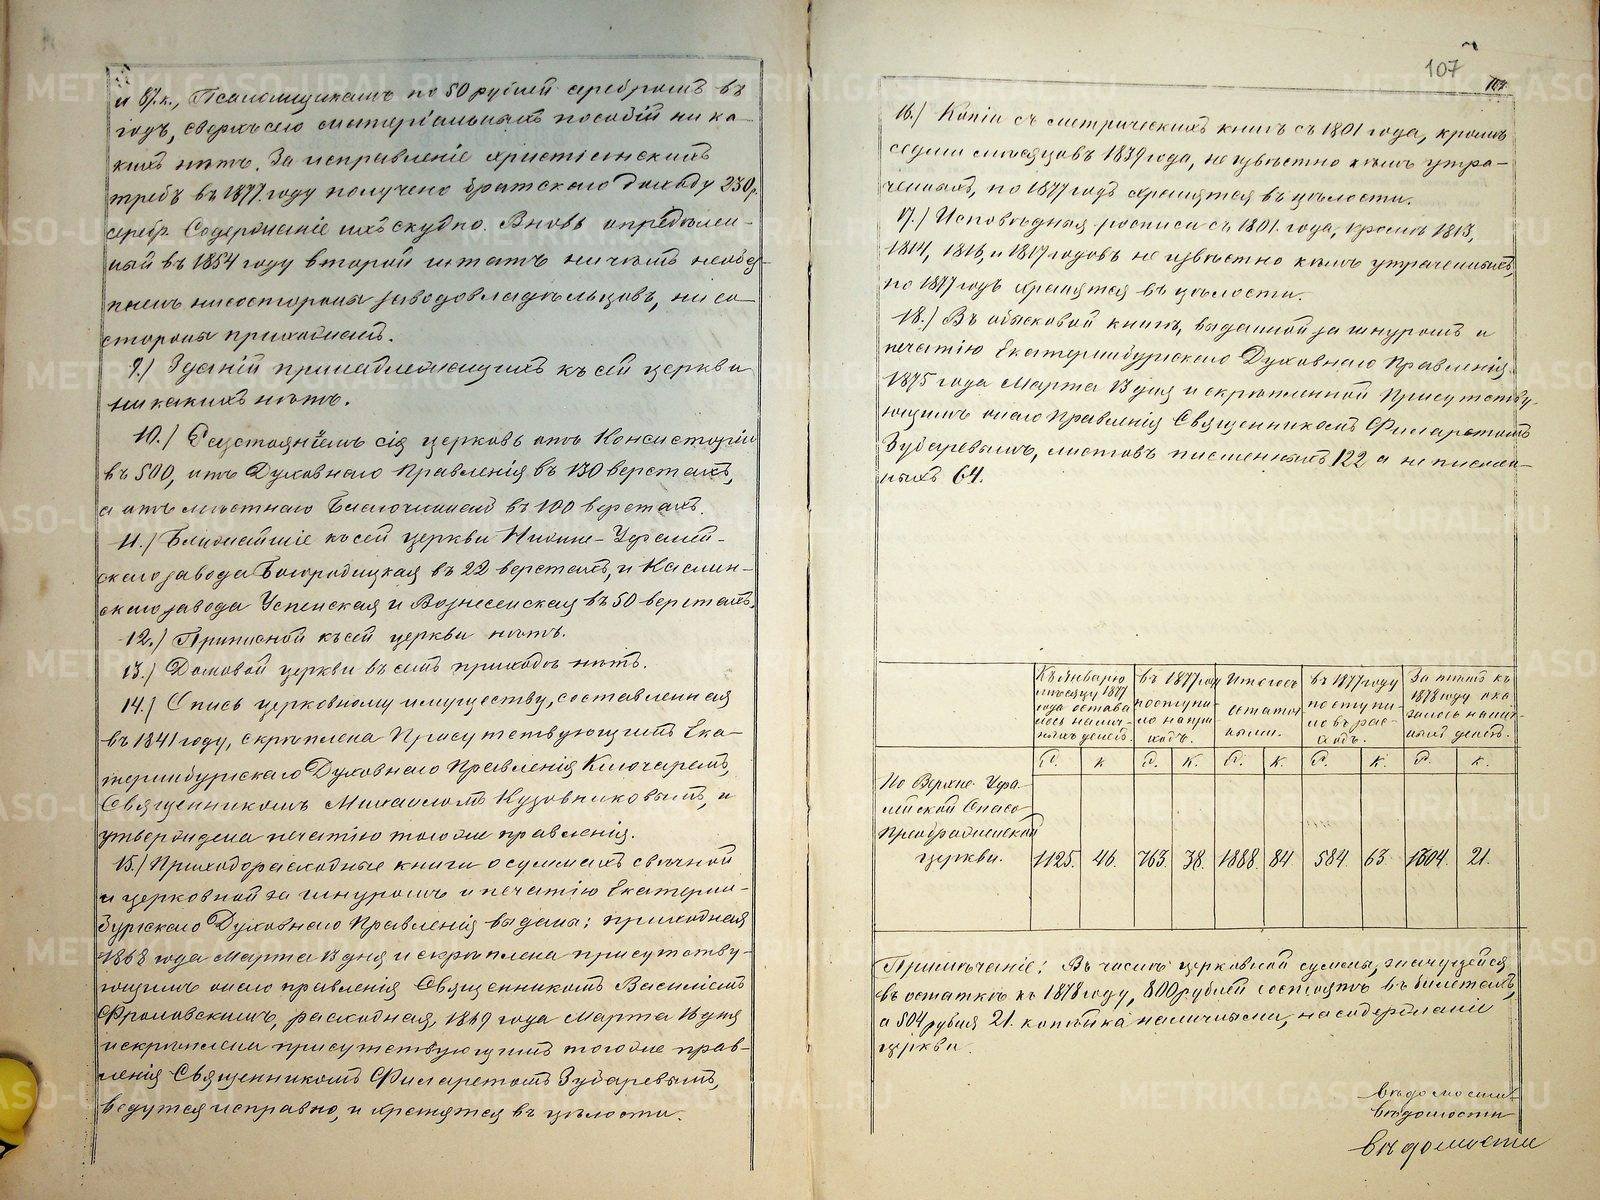 и 87. к., Псаломщикамъ по 50 рублей серебромъ въ
годъ, сверхъ сего матеріальныхъ пособій ни ка-
кихъ нѣтъ. За исправленіе христіанскихъ
требъ въ 1877 году получено братскаго доходу 230 р.
серебр. Содержаніе ихъ скудно. Вновь опредѣлен-
ный въ 1854 году второй штатъ ничѣмъ необез-
печенъ ни со стороны заводовладѣльцовъ, ни со
стороны прихожанъ.
9.) Зданій принадлежащихъ къ сей церкви
никакихъ нѣтъ.
10.) Разстояніемъ сія церковь отъ Консисторіи
въ 500, отъ Духовнаго Правленія въ 130 верстахъ,
а отъ мѣстнаго Благочиннаго въ 100 верстахъ.
11.) Ближайшіе къ сей церкви Нижне-Уфалей-
скаго завода Богородицкая въ 22 верстахъ, и Каслин-
скаго завода Успенская и Вознесенская въ 50 верстахъ.
12.) Приписной къ сей церкви нѣтъ.
13.) Домовой церкви въ семъ приходѣ нѣтъ.
14.) Опись церковному имуществу, составленная
въ 1841 году, скрѣплена Присутствующимъ Ека-
теринбургскаго Духовнаго Правленія Ключаремъ,
Священникомъ Михаиломъ Кузовниковымъ, и
утверждена печатію тогоже правленія.
15.) Приходорасходные книги о суммахъ свѣчной
и церковной за шнуромъ и печатію Екатерин-
бургскаго Духовнаго Правленія выданы: приходная
1868 года Марта 13 дня и скрѣплена присутству-
ющимъ онаго правленія Священникомъ Василіемъ
Фроловскимъ, расходная, 1869 года Марта 13 дня
и скрѣплена присутствующимъ тогоже прав-
ленія Священникомъ Филаретомъ Зубаревымъ,
ведутся исправно, и хранятся въ цѣлости.
107
107
16.) Копіи съ метрическихъ книгъ съ 1801 года, кромѣ
седьми мѣсяцовъ 1839 года, не извѣстно кѣмъ утра-
ченныхъ, по 1877 годъ хранятся въ цѣлости.
17.) Исповѣдныя росписи съ 1801 года, кромѣ 1813,
1814, 1816, и 1817 годовъ не извѣстно кѣмъ утраченныхъ,
по 1877 годъ хранятся въ цѣлости.
18.) Въ обысковой книгѣ, выданной за шнуромъ и
печатію Екатеринбургскаго Духовнаго Правленія
1875 года Марта 13 дня и скрѣпленной Присутству-
ющимъ онаго Правленія Священникомъ Филаретомъ
Зубаревымъ, листовъ писменныхъ 122 а неписмен-
ныхъ 64.
Къ Январю мѣсяцу 1877 года остава лось налич- ныхъ денегъ. въ 1877 году поступи- ло на при- ходъ. Итого съ остаточ- ными. въ 1877 году поступи- ло въ рас- ходъ. За тѣмъ къ 1878 году ока- залось налич- ныхъ денегъ.
Р. к. Р. к. Р. к. Р. к. Р. к.
По Верхне-Уфа-
лейской Спасо
Преображенской
церкви. 1125. 46. 763. 38. 1888. 84. 584. 63. 1304. 21.
Примѣчаніе: Въ числѣ церковной суммы, значущейся
въ остаткѣ къ 1878 году, 800 рублей состоятъ въ билетахъ,
а 504 рубля 21. копѣйка наличными, на содержаніе
церкви.
вѣдомости
вѣдомости
вѣдомости